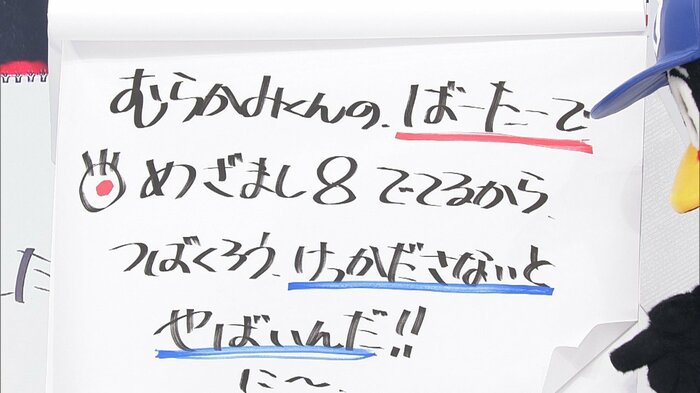 むらかみくんの、ばーたーで
めざまし8 でてるから、
つばくろう、けっかださないと
やばいんだ!!
に〜、
だ